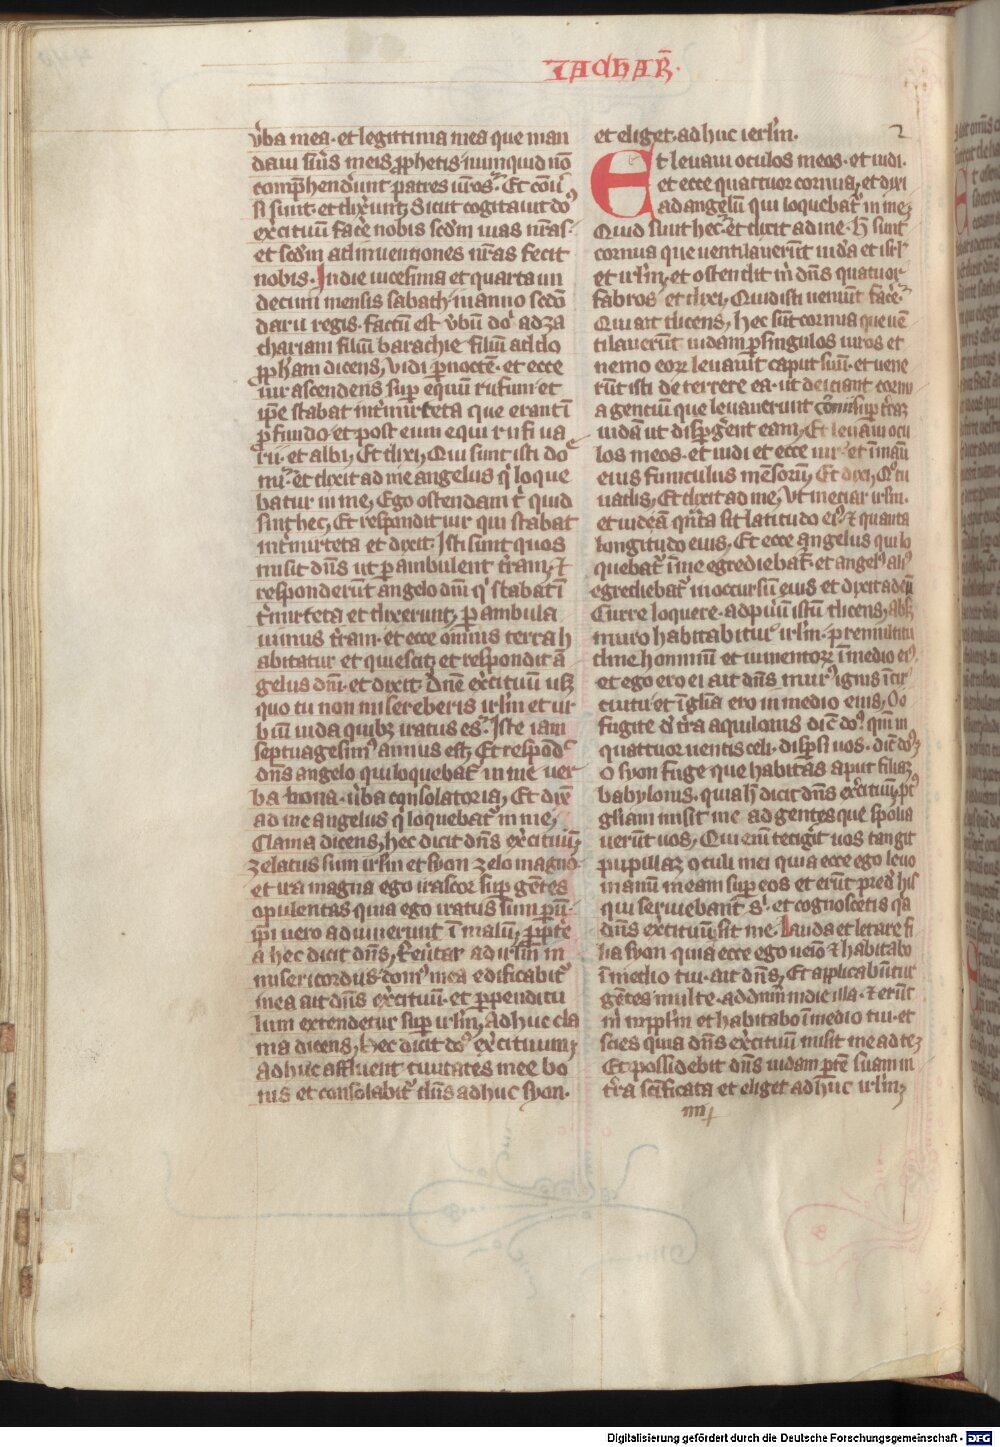 ZACHAR̄.
v̾ba mea · et legittima mea que man
daui s̾uis meis ꝓphetis nu̅nquid no̅
comp̅hend̾unt patres ur̅os · Et con̅u̾
si sunt · et dixer̅t Sicut cogitauit dn̅s
ex̾cituu̅ fac̾e nobis scd̅m uias nr̅as
et scd̅m adinuentiones nr̅as fecit
nobis · In die uicesima et quarta un
decimi mensis sabath in anno scd̅o
darii regis · factu̅ est v̾bu̅ dn̅i ad za
chariam filiu̅ barachie filiu̅ addo
ꝓph̅am dicens, Vidi p̱ nocte̅ · et ecce
uir ascendens sup̱ equu̅ rufum et
ip̅e stabat int̾ mirteta que erant i̅
ꝓfundo et post eum equi rufi ua
rii · et albi, Et dixi, Qui sunt isti do
mi̅e · et dixit ad me angelus qⁱ loque
batur in me, Ego ostendam tⁱ quid
sint hec, Et respondit uir qui stabat
int̾ mirteta et dixit · Isti sunt quos
misit dn̅s ut p̱ambulent t̾ram, ⁊
responderu̅t angelo dn̅i qⁱ stabat i̅
t̾ mirteta et dixerunt, p̱ambula
uimus t̾ram · et ecce omnis terra h
abitatur et quiescit, et respondit a̅
gelus dn̅i · et dixit, Dn̅e ex̾cituu̅ usꝫ
quo tu non misereberis irl̅m et ur
biu̅ iuda quibꝫ iratus es, Iste iam
septuagesimꝰ annus est, Et respo̅d
dn̅s angelo qui loquebat̾ in me uer
ba bona · v̾ba consolatoria, Et dix̅
ad me angelus qⁱ loquebat̾ in me,
Clama dicens, hec dicit dn̅s ex̾cituu̅,
zelatus sum irl̅m et syon zelo magno
et ira magna ego irascor sup̱ ge̅tes
opulentas quia ego iratus sum p̱u̅ ·
ip̅i uero adiuuerunt i̅ malu̅, p̱pt̾e
a hec dicit dn̅s, Reu̾tar ad irl̅m in
misericordiis · domꝰ mea edificabit̾
in ea ait dn̅s ex̾cituu̅ · et p̱pendicu
lum extendetur sup̱ irl̅m, Adhuc cla
ma dicens, hec dicit dn̅s ex̾cituum,
Adhuc affluent ciuitates mee bo
nis et consolabit̾ dn̅s adhuc syon ·
et eliget · adhuc ierl̅m ·
2
Et leuaui oculos meos · et uidi ·
et ecce quattuor cornua, et dixi
ad angelu̅ qui loquebat̾ in me,
Quid sunt hec · et dixit ad me · H̅ sunt
cornua que uentilaueru̅t iuda̅ et isrl̅
et irl̅m, et ostendit m̾ dn̅s quatuor
fabros et dixi, Quid isti ueniu̅t fac̾e ·
Qui ait dicens, hec su̅t cornua que ue̅
tilaueru̅t iudam p̱ singulos uiros et
nemo eoꝝ leuauit caput suu̅ · et uene
ru̅t isti deterrere ea · ut deiciant cornu
a gentiu̅ que leuauerunt cornu sup̱ t̾ra̅
iuda̅ ut disp̱g̾ent eam, Et leuaui ocu
los meos · et uidi et ecce uir · et i̅ manu
eius funiculus me̅soru̅, Et dixi, Qͦ tu
uadis, Et dixit ad me, Vt meciar irl̅m ·
et uidea̅ qn̅ta sit latitudo eiꝰ ⁊ quanta
longitudo eius, Et ecce angelus qui lo
quebat̾ i̅ me egrediebat̾ · et angelꝰ aliꝰ
egrediebat̾ in occursu̅ eius et dixit ad eu̅
Curre loquere · ad pu̾u̅ istu̅ dicens, Absꝫ
muro habitabitur irl̅m · pre multitu
dine hominu̅ et iumentoꝝ i̅ medio eiꝰ,
et ego ero ei ait dn̅s murꝰ ignis i̅ cir
cuitu et i̅ gl̅ia ero in medio eius, O o
fugite de t̾ra aquilonis dic̅ dn̅s · qm̅ in
quattuor uentis celi · disp̱si uos · dic̅ dn̅s,
O syon fuge que habitas aput filia̅
babylonis · quia h̅ dicit dn̅s ex̾cituu̅, pꝰ
gl̅iam misit me ad gentes que spolia
uerunt uos, Qui eni̅ tetig̾it uos tangit
pupilla̅ oculi mei quia ecce ego leuo
manu̅ meam sup̱ eos et eru̅t pred̾ hiis
qui seruiebant sⁱ · et cognoscetis qa
dn̅s ex̾cituu̅ misit me · Lauda et letare fi
lia syon quia ecce ego uenio ⁊ habitabo
i̅ medio tui · ait dn̅s, Et applicabu̅tur
ge̅tes multe · ad dn̅m in die illa · ⁊ eru̅t
m̾ in pp̅lm et habitabo i̅ medio tui · et
scies quia dn̅s ex̾cituu̅ misit me ad te,
Et possidebit dn̅s iudam p̱te̅ suam in
t̾ra sc̅ificata et eliget adhuc irl̅m,
Digitalisierung gefördert durch die Deutsche Forschungsgemeinschaft - DFG